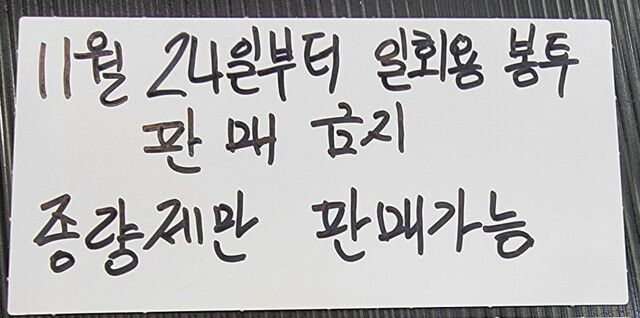 11월 24일부터 일회용 봉투
판매 금지
종량제만 판매가능